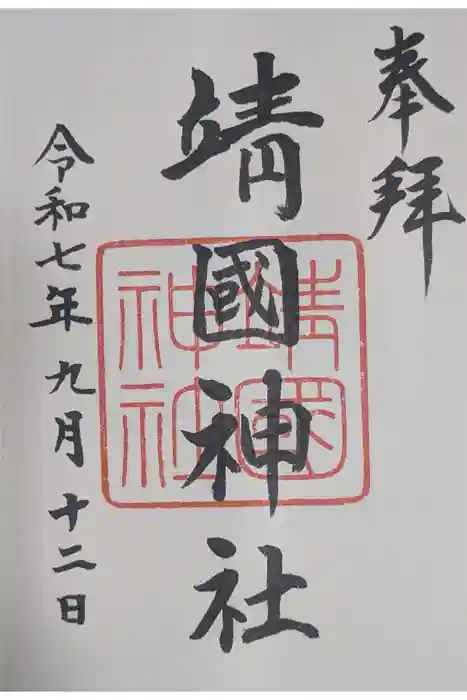 奉拝
靖國神社
靖國神社
令和七年九月十二日